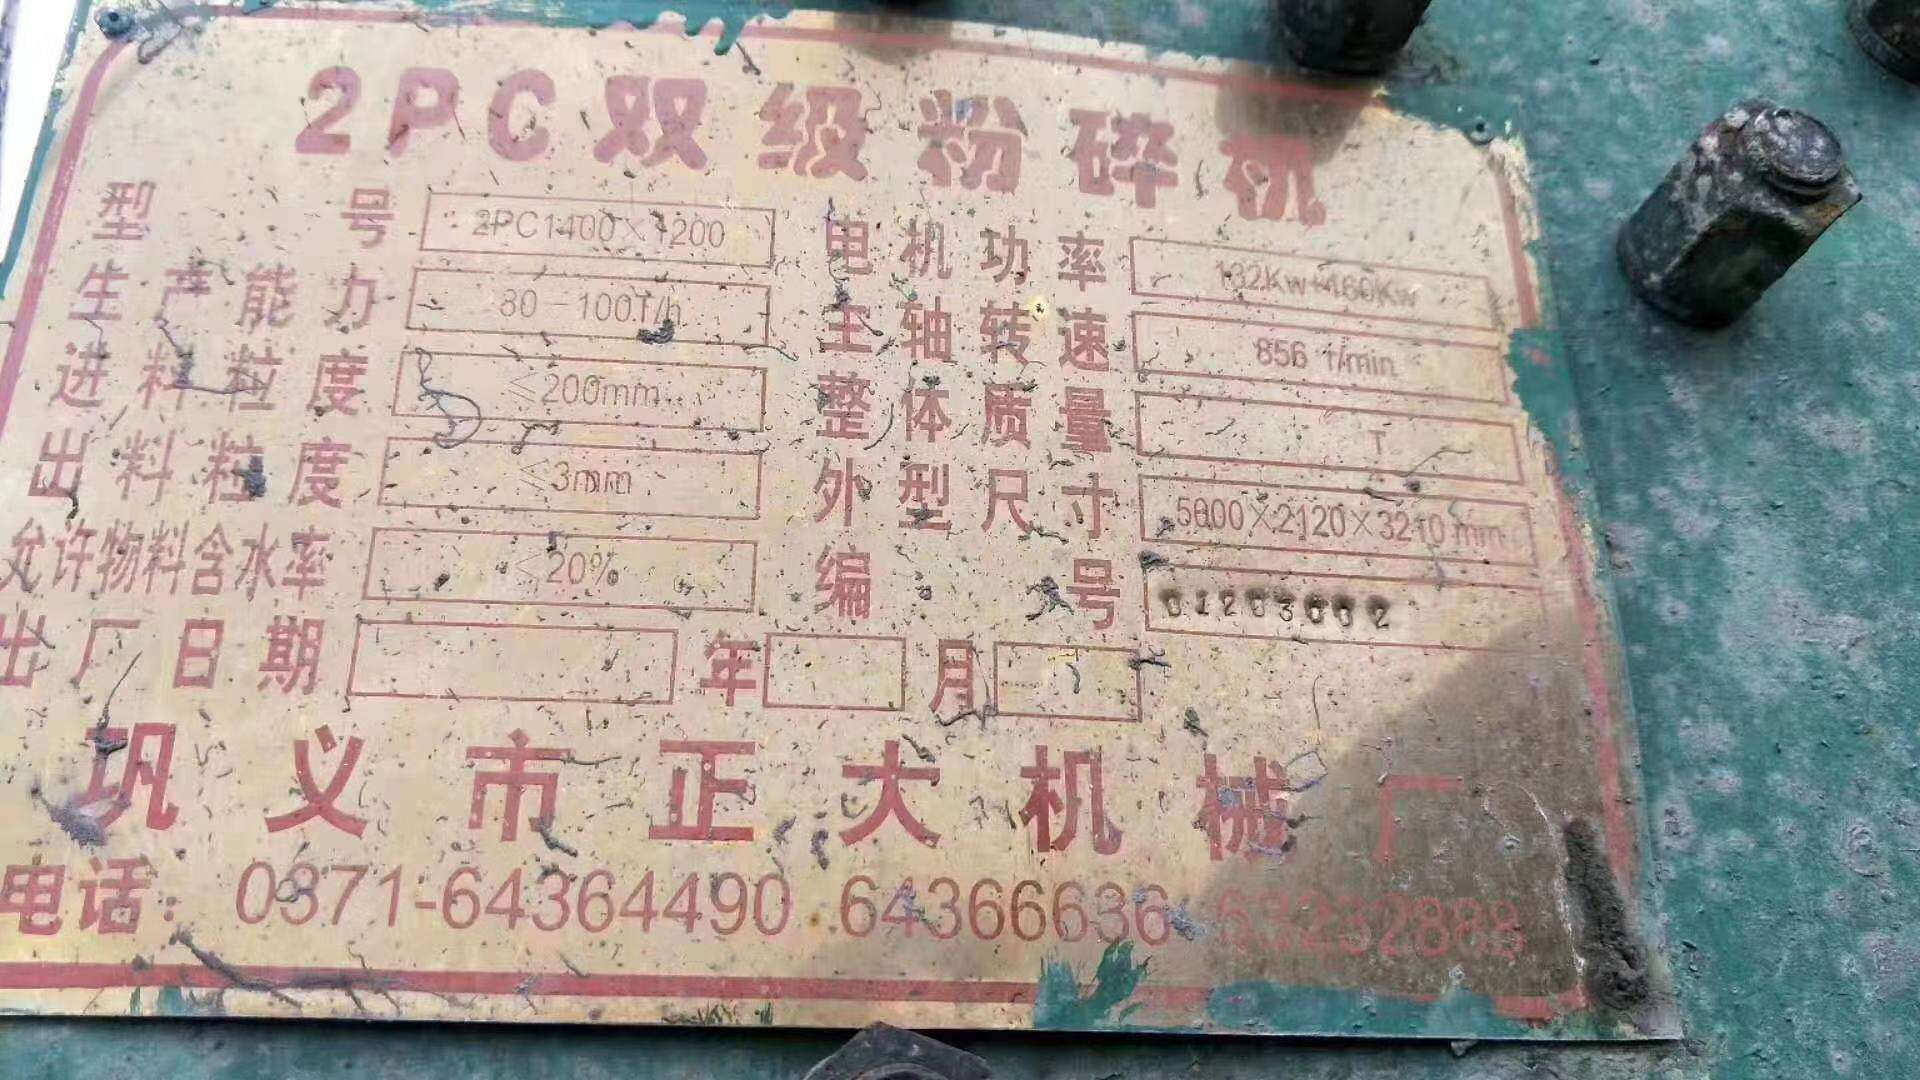 2PC双级粉碎机
型号 2PC1400×1200 电机功率 132Kw+160Kw
生产能力 80-100T/h 主轴转速 856 r/min
进料粒度 ≤200mm 整体质量 T
出料粒度 ≤3mm 外型尺寸 5600×2120×3210mm
允许物料含水率 ≤20% 编号 01203602
出厂日期 年 月
巩义市正大机械厂
电话: 0371-64364490 64366636 63232888